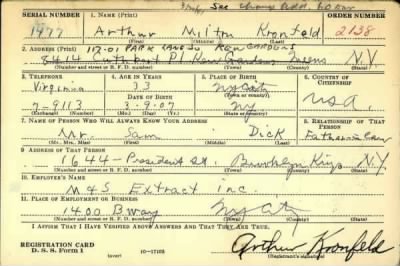 See change add. to Bar
SERIAL NUMBER 1. NAME (Print) ORDER NUMBER
1477 Arthur Milton Kronfeld 2138
(First) (Middle) (Last)
83-01 PARK LANE SO KEW GARDENS
2. ADDRESS (Print)
8414 Cuthbert Pl Kew Gardens Queens N.Y.
(Number and street or R. F. D. number) (Town) (County) (State)
3. TELEPHONE 4. AGE IN YEARS 5. PLACE OF BIRTH 6. COUNTRY OF CITIZENSHIP
Virginia 33 NY City
(Exchange) DATE OF BIRTH (Town or county)
7-9113 3-9-07 NY USA
(Number) (Mo.) (Day) (Yr.) (State or country)
7. NAME OF PERSON WHO WILL ALWAYS KNOW YOUR ADDRESS 8. RELATIONSHIP OF THAT PERSON
Mr. Sam Dick Father in Law
(Mr., Mrs., Miss) (First) (Middle) (Last)
9. ADDRESS OF THAT PERSON
1644 - President St. Brooklyn Kings N.Y.
(Number and street or R. F. D. number) (Town) (County) (State)
10. EMPLOYER'S NAME
M & S Extract Inc.
11. PLACE OF EMPLOYMENT OR BUSINESS
1400 Bway NY City
(Number and street or R. F. D. number) (Town) (County) (State)
I AFFIRM THAT I HAVE VERIFIED ABOVE ANSWERS AND THAT THEY ARE TRUE.
REGISTRATION CARD
D. S. S. Form 1 (over) 16-17105 Arthur Kronfeld
(Registrant's signature)